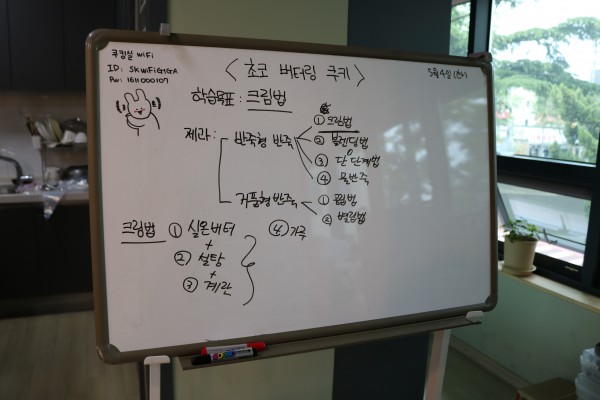 쿠킹실 WiFi
ID: SKWiFiGIGA
PW: 1611000107
< 초코 버터링 쿠키 >
5월 4일 (화)
학습목표 : 크림법
제과 : 반죽형 반죽
① 크림법
② 블렌딩법
③ 단단계법
④ 물반죽
거품형 반죽
① 공립법
② 별립법
크림법 ① 실온버터
+
② 설탕
+
③ 계란
④ 가루